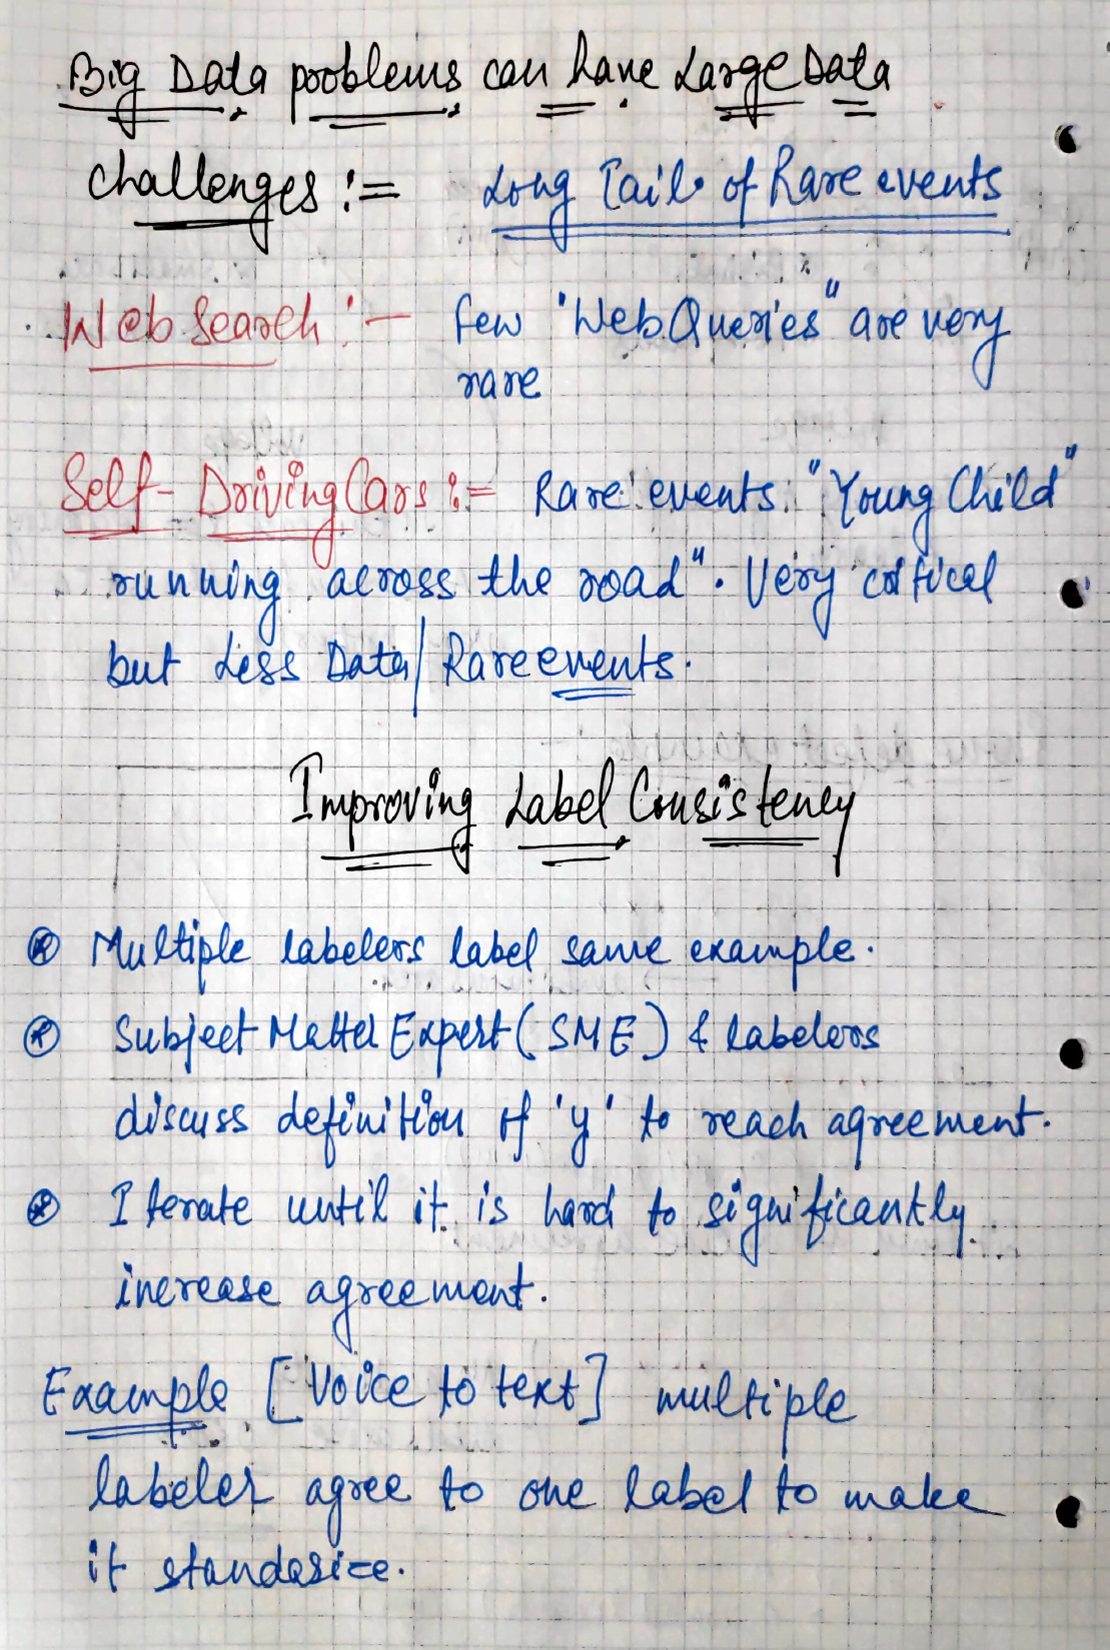 Big Data problems can have Large Data
challenges := Long Tail of Rare events
Web Search :- few "Web Queries" are very
rare
Self-Driving Cars := Rare events "Young Child"
running across the road". Very critical
but Less Data/ Rare events.
Improving Label Consistency
⊛ Multiple labelers label same example.
⊛ Subject Matter Expert (SME) & labelers
discuss definition of 'y' to reach agreement.
⊛ Iterate until it is hard to significantly
increase agreement.
Example [Voice to text] multiple
labeler agree to one label to make
it standasize.